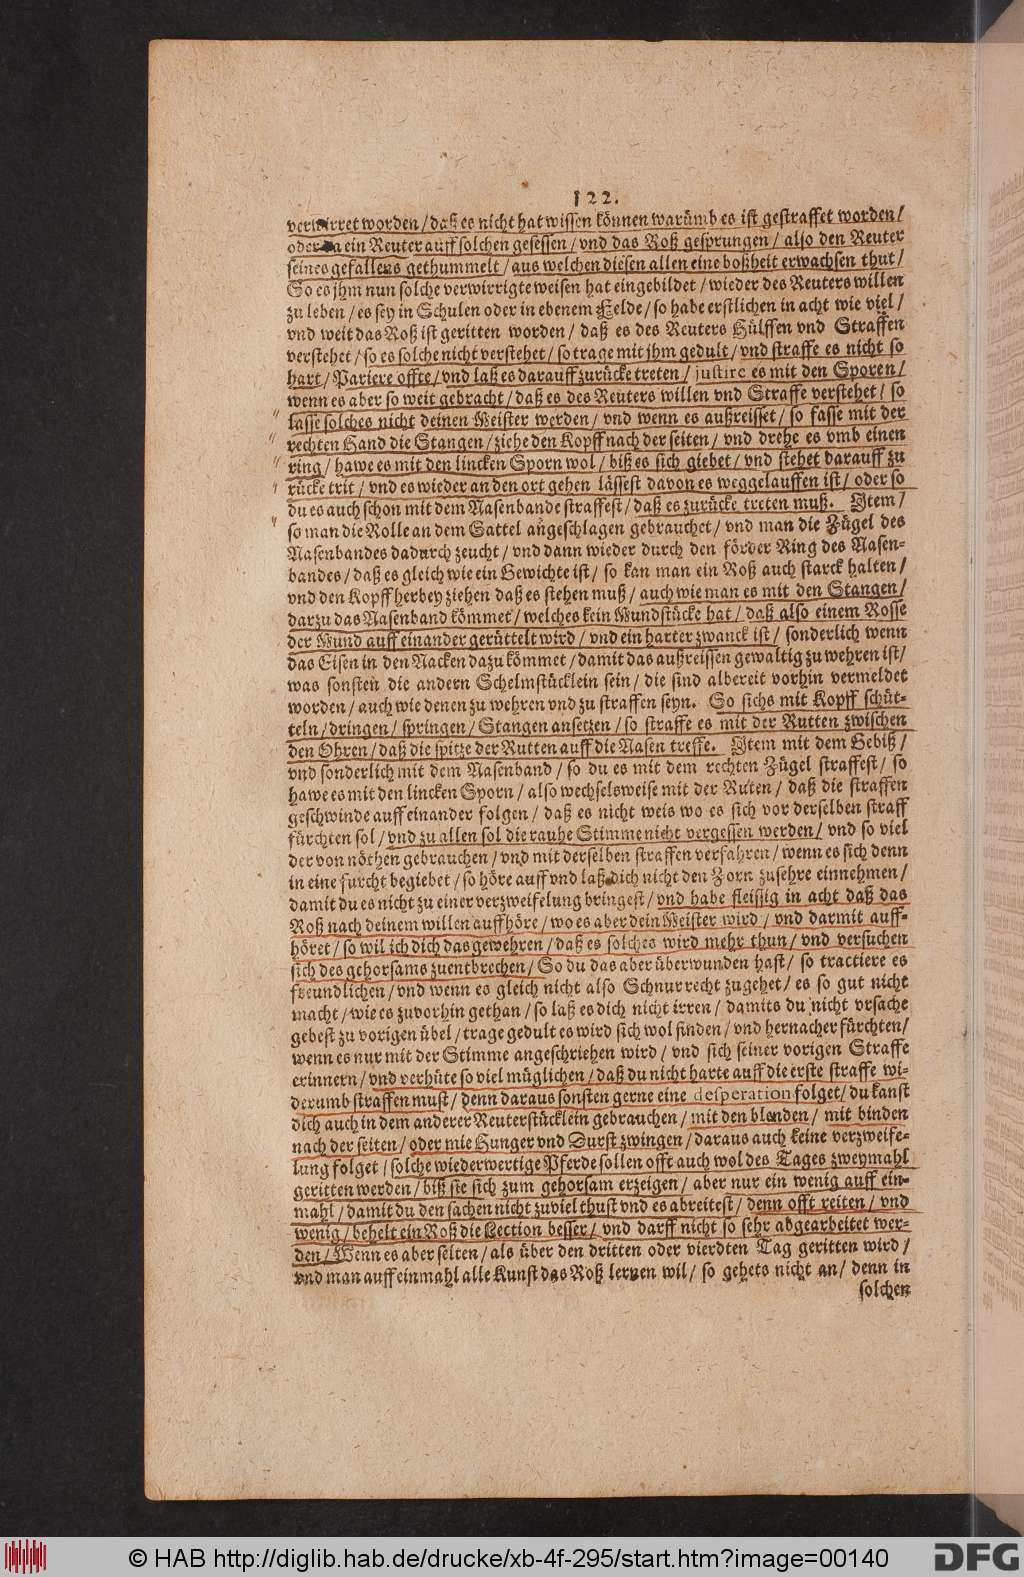 122.
verwirret worden / daß es nicht hat wissen können warümb es ist gestraffet worden /
oder da ein Reuter auff solchen gesessen / vnd das Roß gesprungen / also den Reuter
seines gefallens gethummelt / aus welchen diesen allen eine boßheit erwachsen thut /
So es jhm nun solche verwirrigte weisen hat eingebildet / wieder des Reuters willen
zu leben / es sey in Schulen oder in ebenem Felde / so habe erstlichen in acht wie viel /
vnd weit das Roß ist geritten worden / daß es des Reuters Hülffen vnd Straffen
verstehet / so es solche nicht verstehet / so trage mit jhm gedult / vnd straffe es nicht so
hart / Pariere offte / vnd laß es darauff zurücke treten / justire es mit den Sporen /
wenn es aber so weit gebracht / daß es des Reuters willen vnd Straffe verstehet / so
lasse solches nicht deinen Meister werden / vnd wenn es außreisset / so fasse mit der
rechten Hand die Stangen / ziehe den Kopff nach der seiten / vnd drehe es vmb einen
ring / hawe es mit den lincken Sporn wol / biß es sich giebet / vnd stehet darauff zu
rücke trit / vnd es wieder an den ort gehen lässest davon es weggelauffen ist / oder so
du es auch schon mit dem Nasenbande straffest / daß es zurücke treten muß. Item /
so man die Rolle an dem Sattel angeschlagen gebrauchet / vnd man die Zügel des
Nasenbandes dadurch zeucht / vnd dann wieder durch den förder Ring des Nasen-
bandes / daß es gleich wie ein Gewichte ist / so kan man ein Roß auch starck halten /
vnd den Kopff herbey ziehen daß es stehen muß / auch wie man es mit den Stangen /
darzu das Nasenband kömmet / welches kein Mundstücke hat / daß also einem Rosse
der Mund auff einander gerüttelt wird / vnd ein harter zwanck ist / sonderlich wenn
das Eisen in den Nacken dazu kömmet / damit das außreissen gewaltig zu wehren ist /
was sonsten die andern Schelmstücklein sein / die sind albereit vorhin vermeldet
worden / auch wie denen zu wehren vnd zu straffen seyn. So sichs mit Kopff schüt-
teln / dringen / springen / Stangen ansetzen / so straffe es mit der Rutten zwischen
den Ohren / daß die spitze der Rutten auff die Nasen treffe. Item mit dem Gebiß /
vnd sonderlich mit dem Nasenband / so du es mit dem rechten Zügel straffest / so
hawe es mit den lincken Sporn / also wechselsweise mit der Ruten / daß die straffen
geschwinde auff einander folgen / daß es nicht weis wo es sich vor derselben straff
fürchten sol / vnd zu allen sol die rauhe Stimme nicht vergessen werden / vnd so viel
der von nöthen gebrauchen / vnd mit derselben straffen verfahren / wenn es sich denn
in eine furcht begiebet / so höre auff vnd laß dich nicht den Zorn zusehre einnehmen /
damit du es nicht zu einer verzweifelung bringest / vnd habe fleissig in acht daß das
Roß nach deinem willen auffhöre / wo es aber dein Meister wird / vnd darmit auff-
höret / so wil ich dich das gewehren / daß es solches wird mehr thun / vnd versuchen
sich des gehorsams zuentbrechen / So du das aber überwunden hast / so tractiere es
freundlichen / vnd wenn es gleich nicht also Schnurrecht zugehet / es so gut nicht
macht / wie es zuvorhin gethan / so laß es dich nicht irren / damits du nicht vrsache
gebest zu vorigen übel / trage gedult es wird sich wol finden / vnd hernacher fürchten /
wenn es nur mit der Stimme angeschriehen wird / vnd sich seiner vorigen Straffe
erinnern / vnd verhüte so viel müglichen / daß du nicht harte auff die erste straffe wi-
derumb straffen must / denn daraus sonsten gerne eine desperation folget / du kanst
dich auch in dem anderer Reuterstücklein gebrauchen / mit den blenden / mit binden
nach der seiten / oder mie Hunger vnd Durst zwingen / daraus auch keine verzweife-
lung folget / solche wiederwertige Pferde sollen offt auch wol des Tages zweymahl
geritten werden / biß sie sich zum gehorsam erzeigen / aber nur ein wenig auff ein-
mahl / damit du den sachen nicht zuviel thust vnd es abreitest / denn offt reiten / vnd
wenig / behelt ein Roß die Lection besser / vnd darff nicht so sehr abgearbeitet wer-
den / Wenn es aber selten / als über den dritten oder vierdten Tag geritten wird /
vnd man auff einmahl alle Kunst das Roß lernen wil / so gehets nicht an / denn in
solchen
© HAB http://diglib.hab.de/drucke/xb-4f-295/start.htm?image=00140
DFG